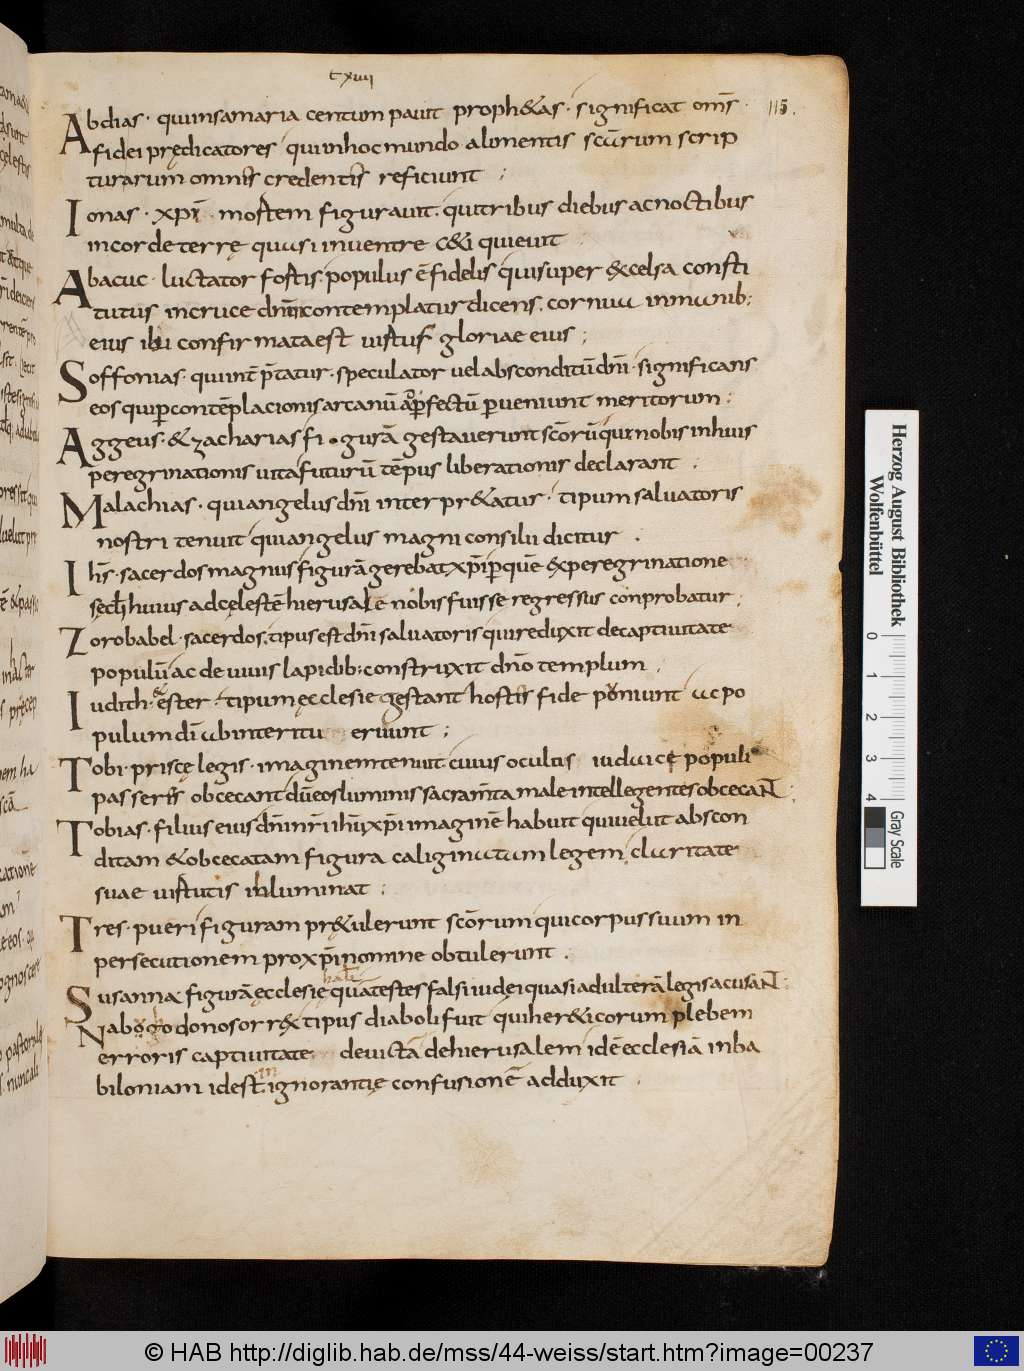 cxiiii
115.
Abdias· quiinsamaria centum pauit proph&as· significat om̄s·
fidei prędicatores quiinhocmundo alimentis sc̄arum scrip
turarum omnis credentis reficiunt ;
Ionas· xp̄i· mortem figurauit· quitribus diebus acnoctibus
incordeterrę quasi inuentre c&i quieuit
Abacuc· luctator fortis· populus ē fidelis quisuper &celsa consti
tutus incruce dn̄m contemplatur dicens· cornua inmanib;
eius ibi confirmataest uirtus gloriae eius ;
Soffonias· quiint̄p̄tatur· speculator uelabsconditū dn̄i· significans
eos quip̱contēplacionis arcanū ap̱fectū p̱ueniunt meritorum ;
Aggeus· &zacharias fi·gurā gestauerunt sc̄orū qui nobis inhuius
peregrinationis uita futurū tēpus liberationis declarant ;
Malachias· quiangelus dn̄i interpr&atur· tipum saluatoris
nostri tenuit quiangelus magni consilii dicitur ·
Ih̄s· sacerdos magnus figurā gerebat xp̄i p̱quē &peregrinatione
sęcl̄i huius adcęlestē hierusalē nobis fuisse regressus conprobatur ;
Zorobabel· sacerdos· tipus est dn̄i saluatoris quireduxit decaptiuitate
populū ac de uiuis lapidib; construxit dn̄o templum ;
Iudith· & ester· tipum ęcclesie gestant hostis fide poniunt ac po
pulum dī abinteritu eruunt ;
Tobi· priscę legis· imaginem tenuit cuius oculus iudaice populi
passeris obcecant dū eos luminis sacram̄ta male intellegentes obcecaNT ;
Tobias· filius eius dn̄i nr̄i ih̄u xp̄i imaginē habuit quiuelut abscon
ditam &obcecatam figura caliginatum legem claritate
suae uirtutis inluminat ;
Tres· pueri figuram pr&ulerunt sc̄orum quicorpus suum in
persecutionem pro xp̄i nomine obtulerunt ·
Susanna figurā ęcclesię quā testes falsi iudęi quasi adulterā legis acusaNT ;
Nabogodonosor r&tipus diaboli fuit quiher&icorum plebem
erroris captiuitate deuictā dehierusalem idē ecclesiā inba
biloniam idest in ignorantię confusionē adduxit ;
Herzog August Bibliothek
Wolfenbüttel
0 1 2 3 4
Gray Scale
© HAB http://diglib.hab.de/mss/44-weiss/start.htm?image=00237